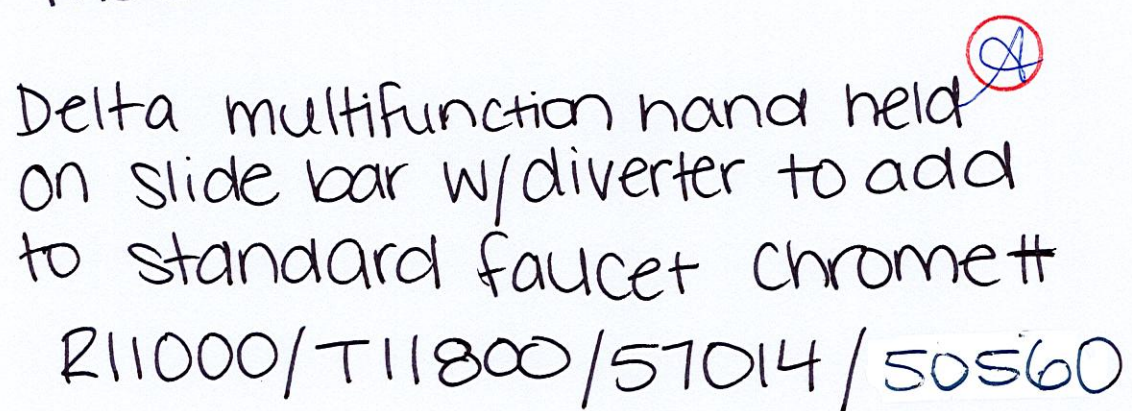 A
Delta multifunction hand held
on slide bar w/diverter to add
to standard faucet chrome#
R11000/T11800/57014/50560